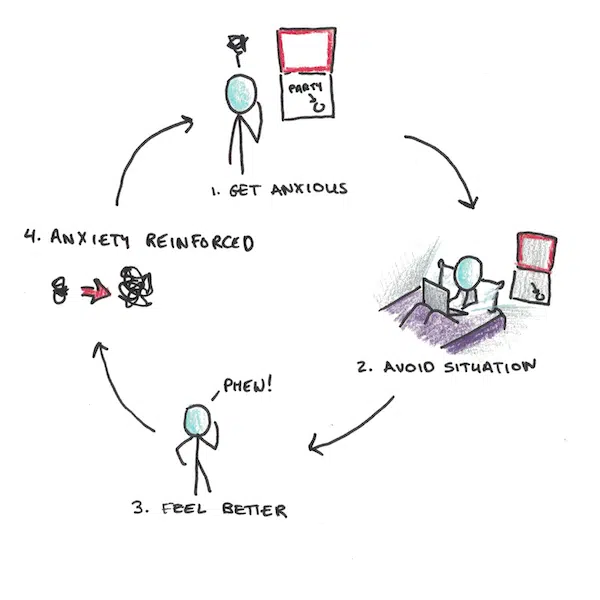 PARTY
1. GET ANXIOUS
2. AVOID SITUATION
PHEW!
3. FEEL BETTER
4. ANXIETY REINFORCED